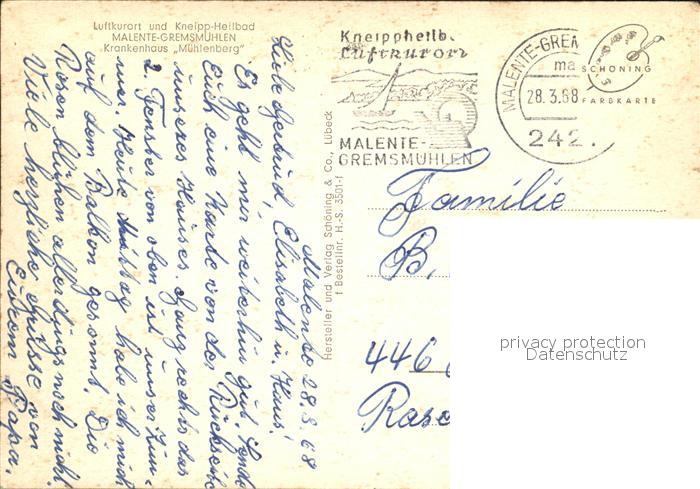 Luftkurort und Kneipp-Heilbad
MALENTE-GREMSMÜHLEN
Krankenhaus „Mühlenberg"
Malente 28.3.68
Liebe Gertrud, Elisabeth u. Hans!
Es geht mir weiterhin gut. Sende
Euch eine Karte von der Rückseite
unseres Hauses. Ganz rechts das
2. Fenster von oben ist unser Zim-
mer. Heute Mittag habe ich mich
auf dem Balkon gesonnt. Die
Rosen blühen allerdings noch nicht.
Viele herzliche Grüsse von
Eurem Papa.
Hersteller und Verlag Schöning & Co., Lübeck
Bestellnr. H.-S. 3501-f
Kneippheilb.
Luftkurort
MALENTE-
GREMSMÜHLEN
MALENTE-GREM
ma
28.3.68
242
SCHÖNING
FARBKARTE
Familie
B.
446
Rasc
privacy protection
Datenschutz